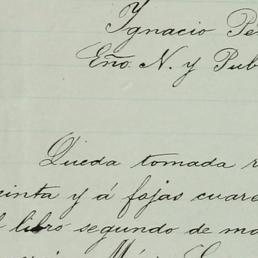 Ignacio Pe
Eño. N. y Pub
Queda tomada r
cinta y á fojas cuare
l libro segundo de ma